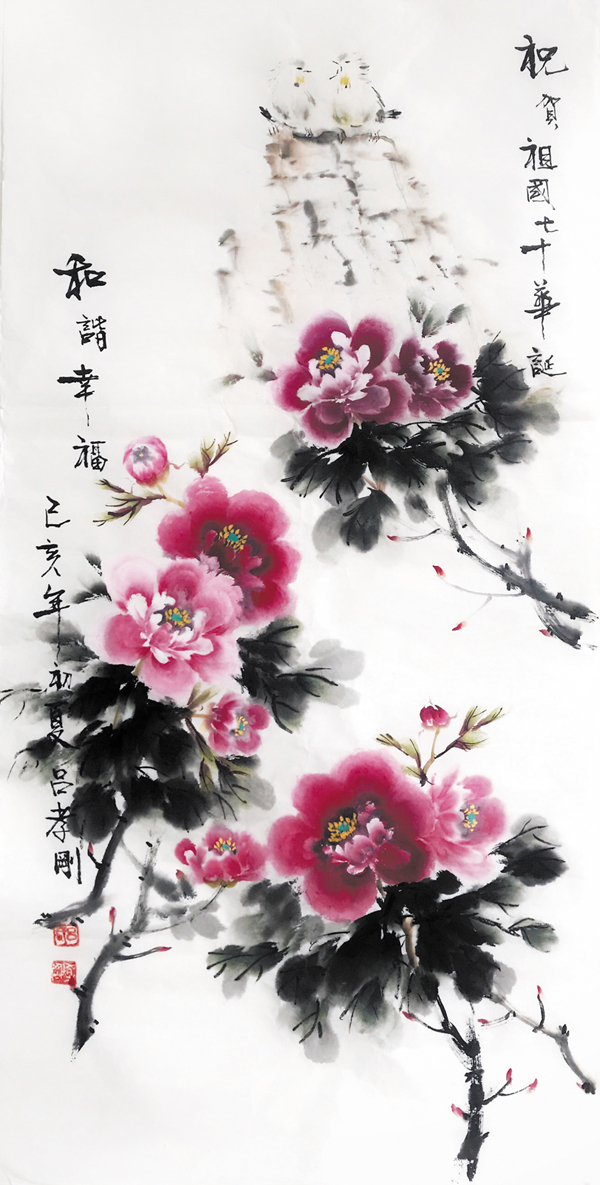 祝贺祖國七十華誕
和諧幸福
己亥年初夏吕孝剛